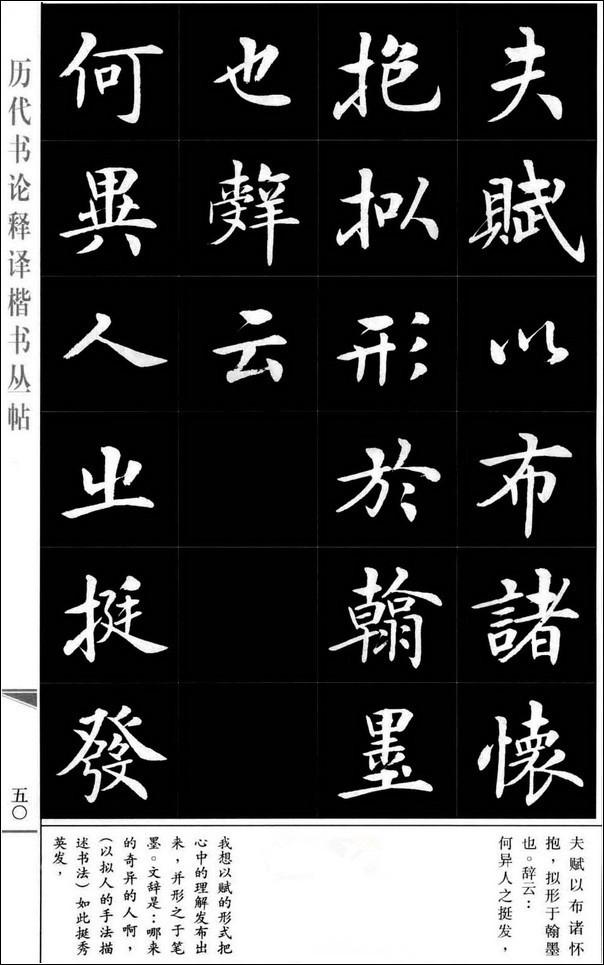 夫賦以布諸懷
抱拟形於翰墨
也辤云
何異人之挺發
历代书论释译楷书丛帖
五〇
夫赋以布诸怀
抱，拟形于翰墨
也。辞云：
何异人之挺发，
我想以赋的形式把
心中的理解发布出
来，并形之于笔
墨。文辞是：哪来
的奇异的人啊，
（以拟人的手法描
述书法）如此挺秀
英发，